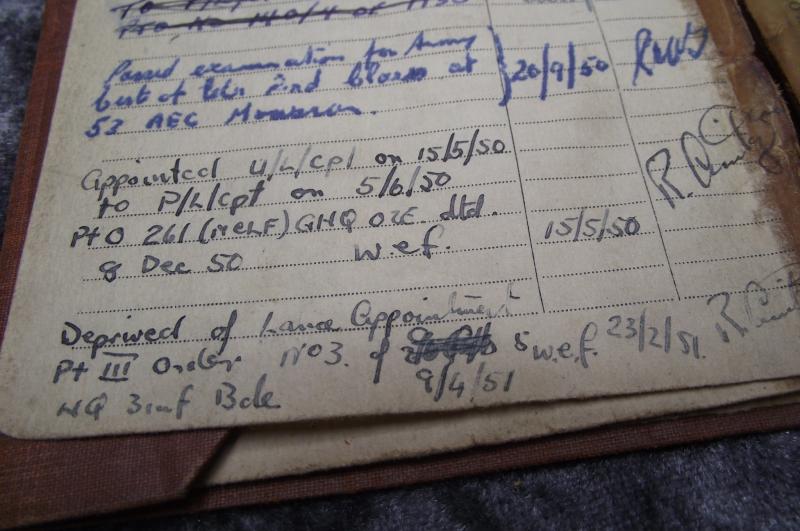 Passed examination for Army
Cert of Edn 2nd Class at
53 AEC
26/9/50
Appointed U/L/Cpl on 15/5/50
to P/L/Cpl on 5/6/50
Pt O 261 (MELF) GHQ O2E. dtd.
8 Dec 50 w.e.f. 15/5/50
Deprived of Lance Appointment
Pt III Order No 3. of w.e.f. 23/2/51.
9/4/51
HQ 3 inf Bde